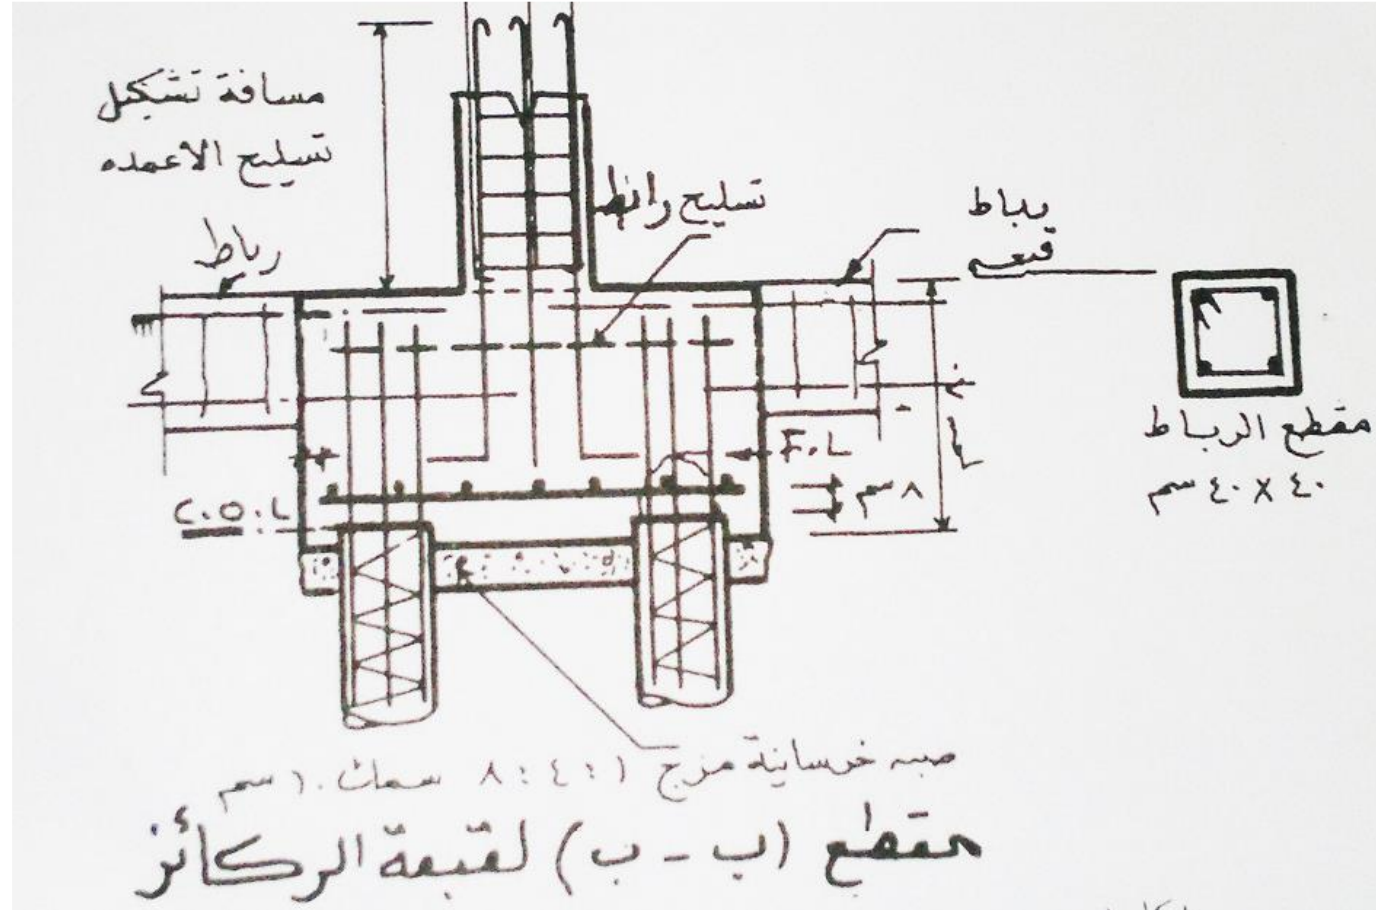 مسافة تشكيل
تسليح الاعمده
رباط
تسليح رابط
رباط
قبعه
F.L
٨ سم
C.O.L
مقطع الرباط
٤٠ X ٤٠ سم
صبه خرسانية مزج ١ : ٤ : ٨ سمك ١٠ سم
مقطع (ب - ب) لقبعة الركائز